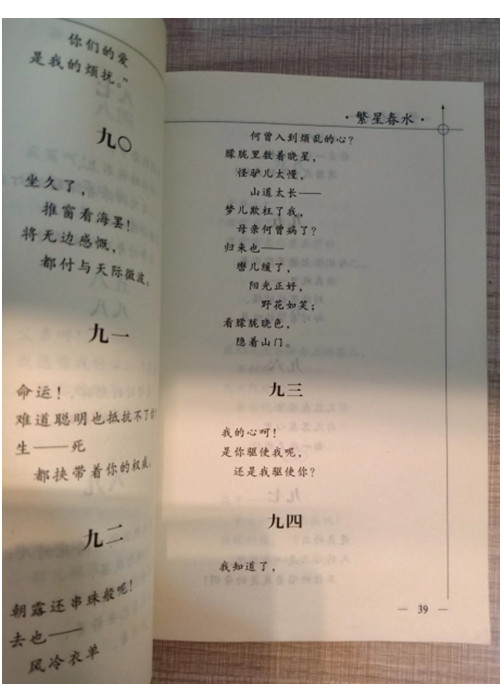 你们的爱
是我的烦扰。”
九〇
坐久了，
推窗看海罢！
将无边感慨，
都付与天际微波。
九一
命运！
难道聪明也抵抗不了你？
生——死
都挟带着你的权威。
九二
朝露还串珠般呢！
去也——
风冷衣单
·繁星春水·
何曾入到烦乱的心？
朦胧里数着晓星，
怪驴儿太慢，
山道太长——
梦儿欺枉了我，
母亲何曾病了？
归来也——
辔儿缓了，
阳光正好，
野花如笑；
看朦胧晓色，
隐着山门。
九三
我的心呵！
是你驱使我呢，
还是我驱使你？
九四
我知道了，
— 39 —